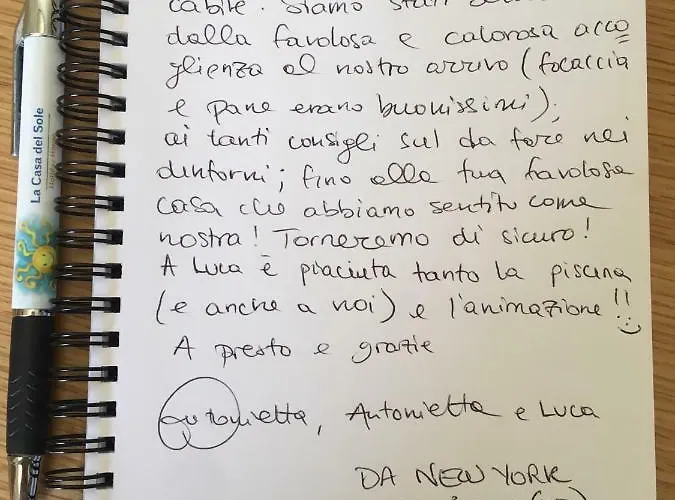 cabile. Siamo stati
dalla favolosa e calorosa acco
glienza al nostro arrivo (focaccia
e pane erano buonissimi);
ai tanti consigli sul da fare nei
dintorni; fino alla tua favolosa
casa che abbiamo sentito come
nostra! Torneremo di sicuro!
A Luca è piaciuta tanto la piscina
(e anche a noi) e l'animazione!!
A presto e grazie
Antonietta, Antonietta e Luca
DA NEW YORK
La Casa del Sole